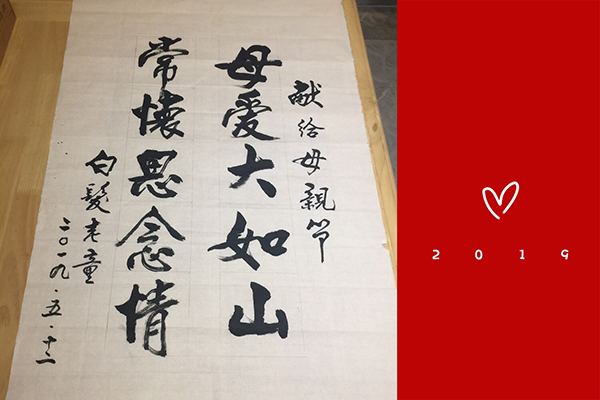 献给母親节
母爱大如山
常懷思念情
白髮老童
二〇一九·五·十二
2019